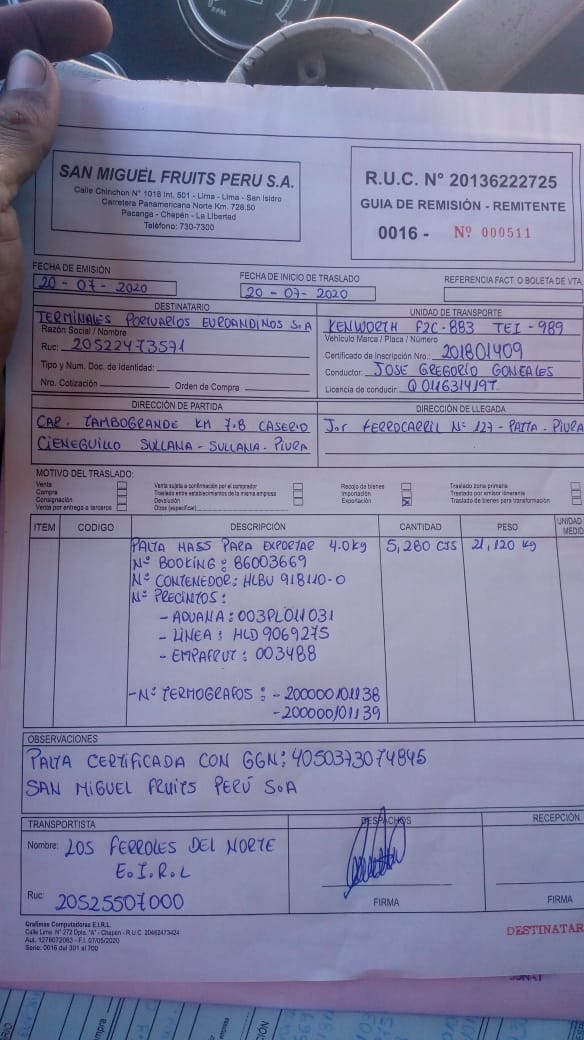 SAN MIGUEL FRUITS PERU S.A.
Calle Chinchon N° 1018 Int. 501 - Lima - Lima - San Isidro
Carretera Panamericana Norte Km. 728.50
Pacanga - Chepén - La Libertad
Teléfono: 730-7300
R.U.C. N° 20136222725
GUIA DE REMISIÓN - REMITENTE
0016 - Nº 000511
FECHA DE EMISIÓN
20 - 07 - 2020
FECHA DE INICIO DE TRASLADO
20 - 07 - 2020
REFERENCIA FACT. O BOLETA DE VTA.
DESTINATARIO
TERMINALES PORTUARIOS EUROANDINOS S.A
Razón Social / Nombre
Ruc: 20522473571
Tipo y Num. Doc. de Identidad:
Nro. Cotización Orden de Compra
UNIDAD DE TRANSPORTE
KENWORTH F2C-883 TEI-989
Vehículo Marca / Placa / Número
Certificado de Inscripción Nro.: 201801409
Conductor: JOSE GREGORIO GONZALES
Licencia de conducir: Q046314197
DIRECCIÓN DE PARTIDA
CAR. TAMBOGRANDE KM 7.8 CASERIO
CIENEGUILLO SULLANA - SULLANA - PIURA
DIRECCIÓN DE LLEGADA
Jor FERROCARRIL Nº 127 - PAITA - PIURA
MOTIVO DEL TRASLADO:
Venta
Compra
Consignación
Venta por entrega a terceros
Venta sujeta a confirmación por el comprador
Traslado entre establecimientos de la misma empresa
Devolución
Otros (especificar)
Recojo de bienes
Importación
Exportación X
Traslado zona primaria
Traslado por emisor itinerante
Traslado de bienes para transformación
ITEM CODIGO DESCRIPCIÓN CANTIDAD PESO UNIDAD
PALTA HASS PARA EXPORTAR 4.0kg 5,280 CJS 21,120 kg
Nº BOOKING: 86003669
Nº CONTENEDOR: HLBU 918110-0
Nº PRECINTOS:
- ADUANA: 003PL011031
- LINEA: HLD 9069275
- EMPAFRUT: 003488
- Nº TERMOGRAFOS: - 200000101138
- 200000101139
OBSERVACIONES
PALTA CERTIFICADA CON GGN: 4050373074845
SAN MIGUEL FRUITS PERÚ S.A
TRANSPORTISTA
Nombre: LOS FERROLES DEL NORTE
E.I.R.L
Ruc: 20525507000
DESPACHOS
FIRMA
RECEPCIÓN
FIRMA
Grafimax Computadoras E.I.R.L.
Calle Lima N° 272 Dpto. "A" - Chepén - R.U.C. 20482473424
Aut. 1278072083 - F.I. 07/05/2020
Serie: 0016 del 301 al 700
DESTINATAR
SUNAT